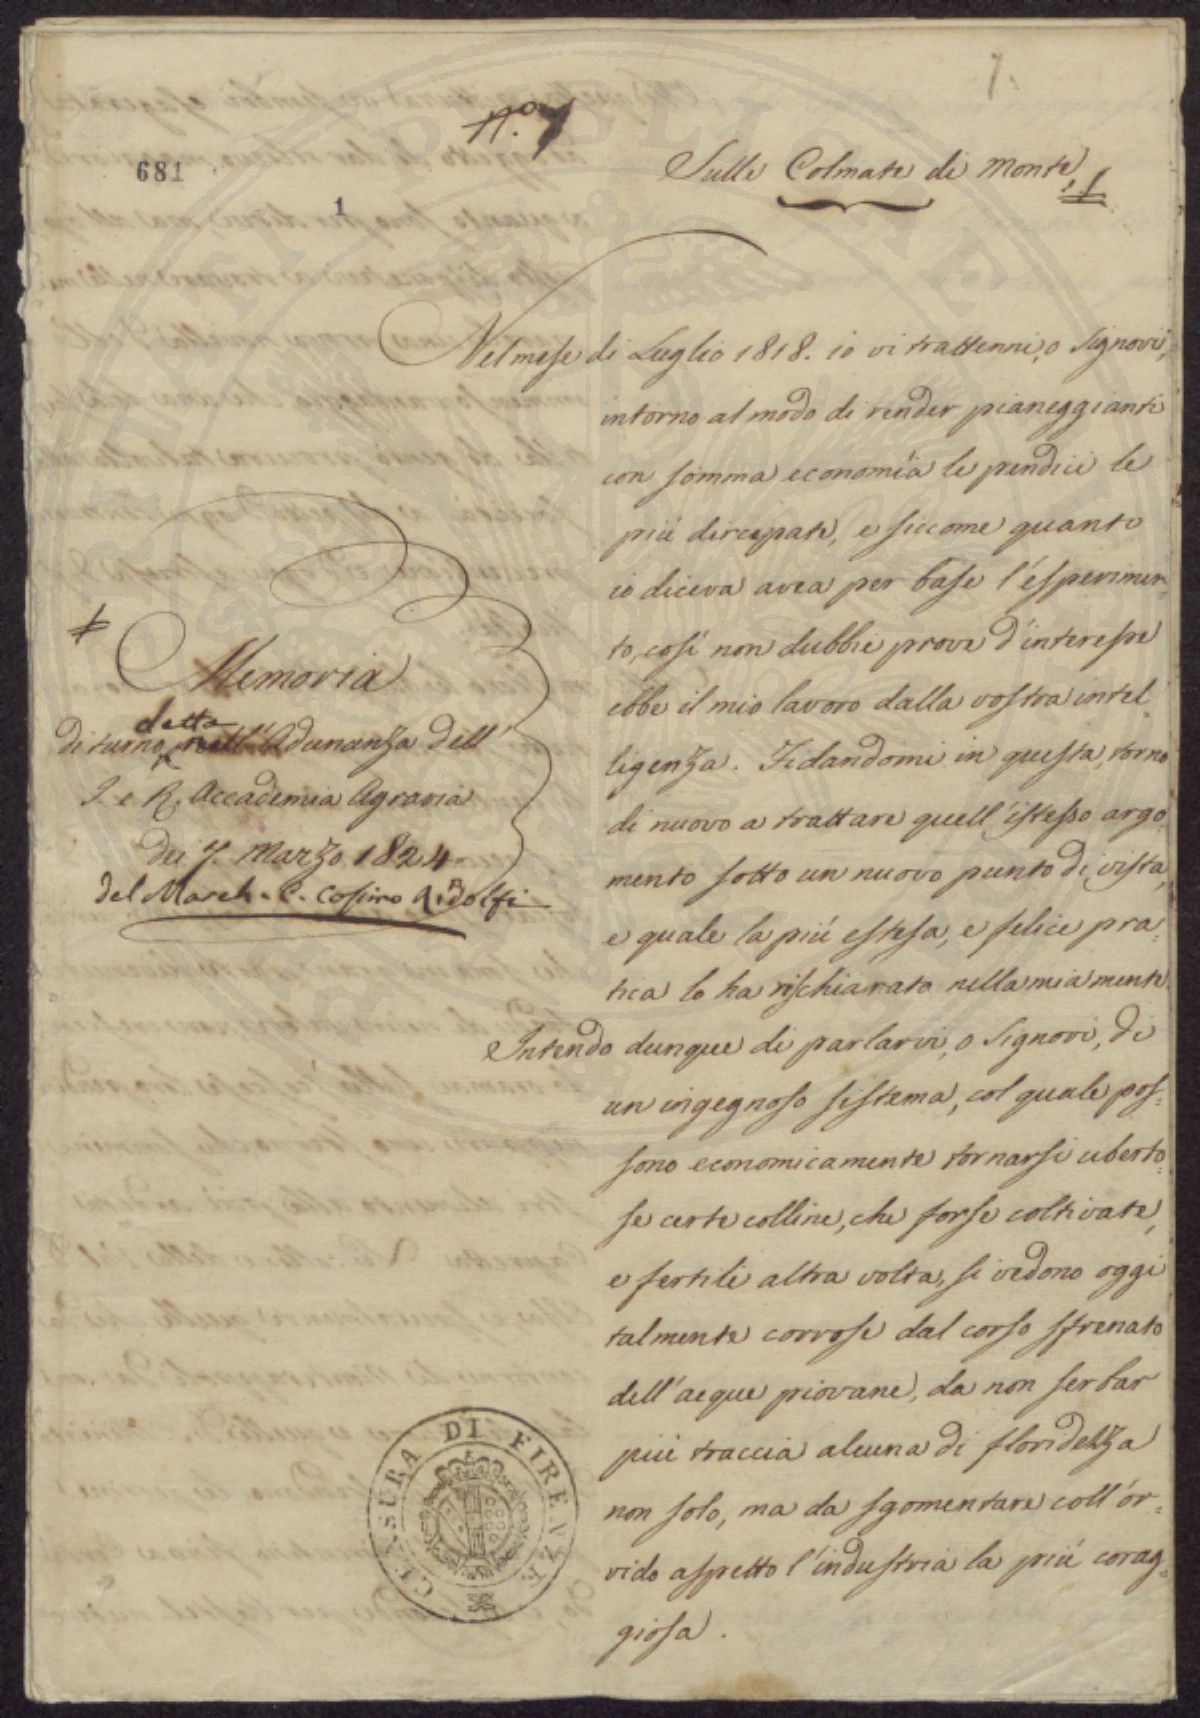 N.° 7
7.
681
1
Sulle Colmate di Monte. 1
Nel mese di Luglio 1818. io vi trattenni, o Signori,
intorno al modo di render pianeggianti
con somma economia le pendici le
più dirupate, e siccome quanto
io diceva avea per base l'esperimen-
to, così non dubbie prove d'interesse
ebbe il mio lavoro dalla vostra intel-
ligenza. Fidandomi in questa, torno
di nuovo a trattare quell'istesso argo-
mento sotto un nuovo punto di vista,
e quale la più estesa, e felice pra-
tica lo ha rischiarato nella mia mente.
Intendo dunque di parlarvi, o Signori, di
un ingegnoso sistema, col quale pos-
sono economicamente tornarsi uberto-
se certe colline, che forse coltivate,
e fertili altra volta, si vedono oggi
talmente corrose dal corso sfrenato
dell'acque piovane, da non serbar
più traccia alcuna di floridezza
non solo, ma da sgomentare coll'or-
rido aspetto l'industria la più corag-
giosa.
Memoria
di turno detta nell'Adunanza dell'
I. e R. Accademia Agraria
dei 7. Marzo 1824
del March. C. Cosimo Ridolfi
CENSURA DI FIRENZE